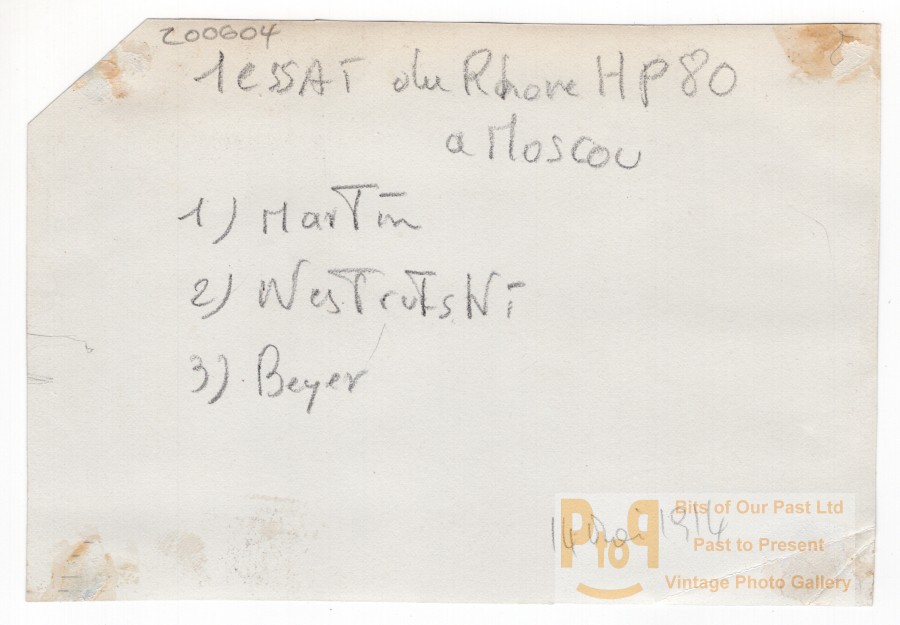 200604
1 essai du Rhone HP 80
a Moscou
1) Martin
2)
3) Beyer
14 Mai 1914
Bits of Our Past Ltd
Past to Present
Vintage Photo Gallery